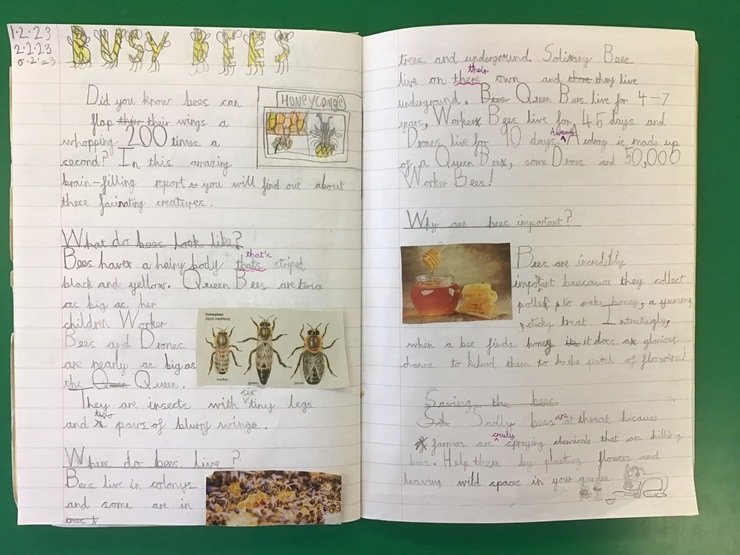 1.2.23
2.2.23
6.2.23
BUSY BEES
HONEYCONDE
Did you know bees can
flap their wings a
whopping 200 times a
second? In this amazing
brain-filling report you will find out about
these facinating creatures.
What do bees look like?
Bees haver a hairy body thats that's striped
black and yellow. Queen Bees are twice
as big as her
children Worker
Bees and Drones
are nearly as big as
the Queen Queen.
They are insects with six tiny legs
and two pairs of blury wings.
honeybee
(Apis mellifera)
worker queen drone
Where do bees live?
Bees live in colonys
and some are in
trees and underground. Solitary Bees
live on there their own and they live
underground. Bees Queen Bees live for 4-7
years, Worker Bees live for 45 days and
Drones live for 90 days. A colony is made up
of a Queen Bees, some Drones and 50,000
Worker Bees!
Why are bees important?
Bees are incredibly
important beecause they collect
pollen to make honey, a yummy
sticky treat. Intrestingly,
when a bee finds honey it does a glorious
dance to the patch of flowers!
Saving the bees
Sadly bees are at threat because
farmers are cruely spraying chemicals that are killing
bees. Help them by planting flowers and
leaving wild spaces in your garden.